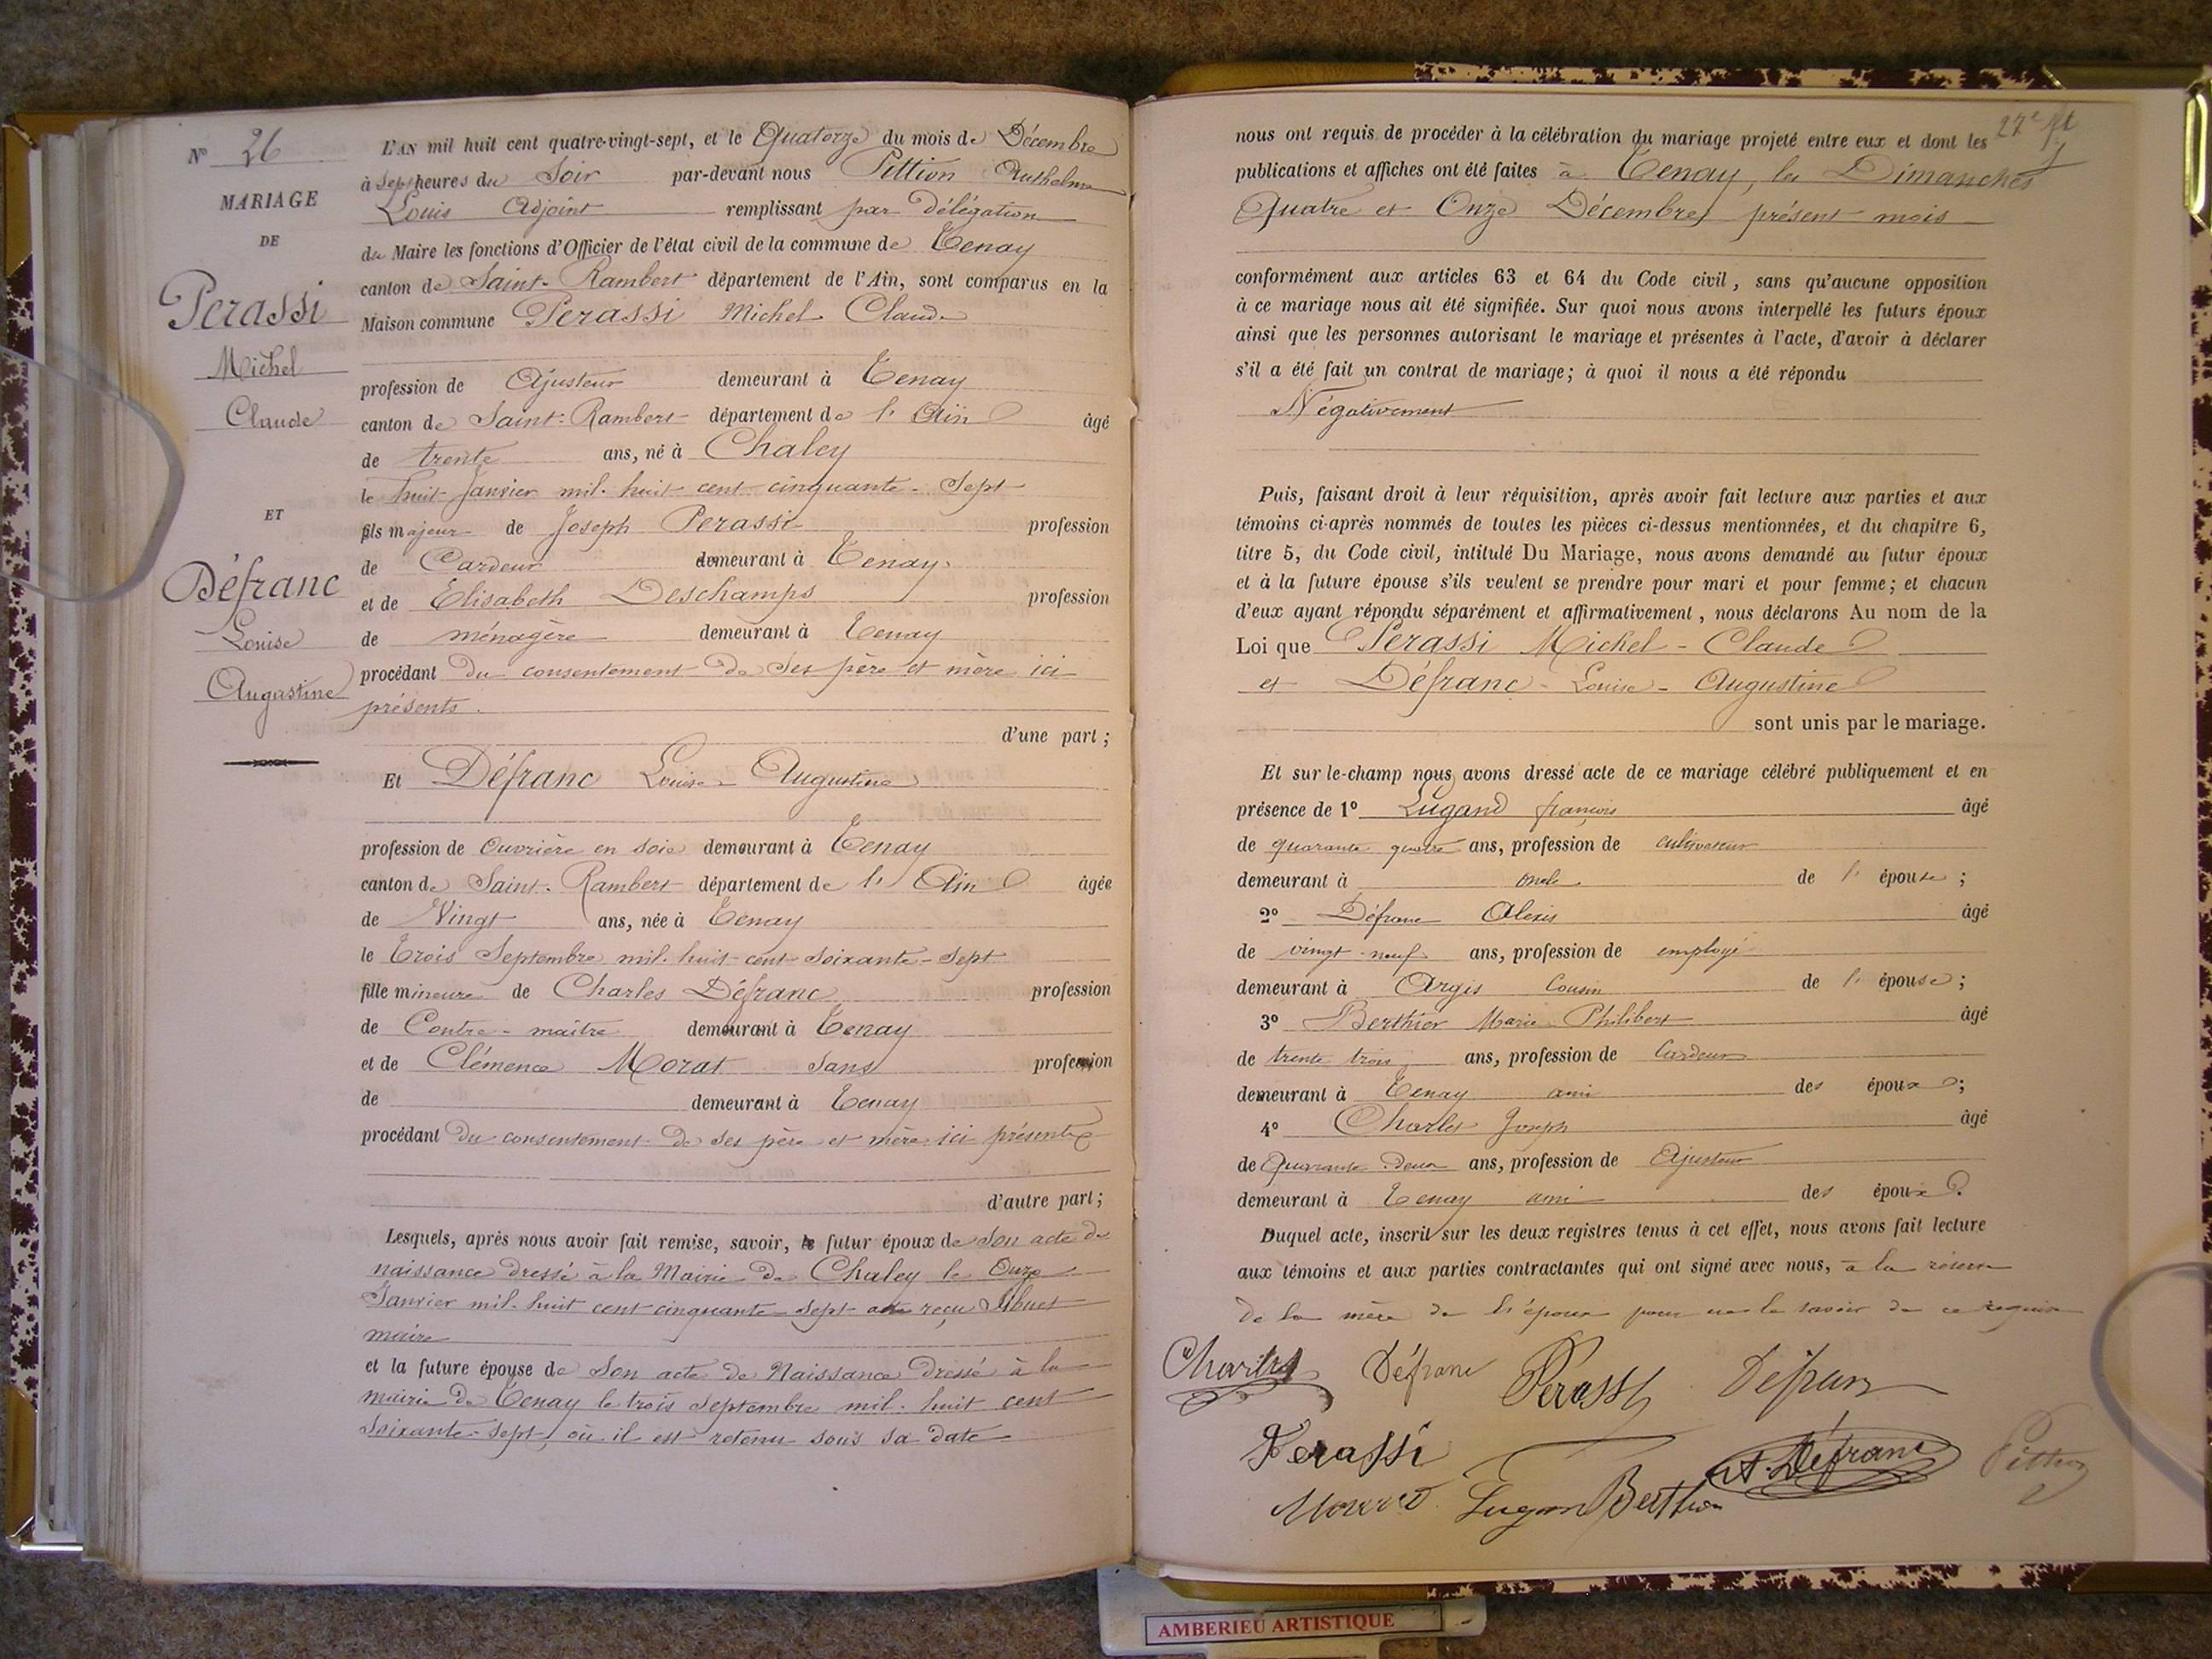 N° 26
MARIAGE
DE
Perassi
Michel
Claude
ET
Défranc
Louise
Augustine
L'AN mil huit cent quatre-vingt-sept, et le Quatorze du mois de Décembre
à Sept heures du Soir par-devant nous Pittion Anthelme
Louis Adjoint remplissant par Délégation
du Maire les fonctions d'Officier de l'état civil de la commune de Tenay
canton de Saint-Rambert département de l'Ain, sont comparus en la
Maison commune Perassi Michel Claude
profession de Ajusteur demeurant à Tenay
canton de Saint-Rambert département de l'Ain âgé
de trente ans, né à Chaley
le huit Janvier mil huit cent cinquante-Sept
fils majeur de Joseph Perassi profession
de Cardeur demeurant à Tenay
et de Elisabeth Deschamps profession
de ménagère demeurant à Tenay
procédant du consentement de Ses père et mère ici
présents
d'une part ;
Et Défranc Louise Augustine
profession de Ouvrière en Soie demeurant à Tenay
canton de Saint-Rambert département de l'Ain âgée
de Vingt ans, née à Tenay
le Trois Septembre mil huit cent Soixante-Sept
fille mineure de Charles Défranc profession
de Contre-maître demeurant à Tenay
et de Clémence Morat Sans profession
de demeurant à Tenay
procédant du consentement de Ses père et mère ici présents
d'autre part ;
Lesquels, après nous avoir fait remise, savoir, le futur époux de Son acte de
naissance dressé à la Mairie de Chaley le Onze
Janvier mil huit cent cinquante-Sept reçu
maire
et la future épouse de Son acte de Naissance dressé à la
mairie de Tenay le trois Septembre mil huit cent
Soixante-Sept, où il est retenu sous sa date
27e ft
nous ont requis de procéder à la célébration du mariage projeté entre eux et dont les
publications et affiches ont été faites à Tenay, les Dimanches
Quatre et Onze Décembre présent mois
conformément aux articles 63 et 64 du Code civil, sans qu'aucune opposition
à ce mariage nous ait été signifiée. Sur quoi nous avons interpellé les futurs époux
ainsi que les personnes autorisant le mariage et présentes à l'acte, d'avoir à déclarer
s'il a été fait un contrat de mariage; à quoi il nous a été répondu
Négativement
Puis, faisant droit à leur réquisition, après avoir fait lecture aux parties et aux
témoins ci-après nommés de toutes les pièces ci-dessus mentionnées, et du chapitre 6,
titre 5, du Code civil, intitulé Du Mariage, nous avons demandé au futur époux
et à la future épouse s'ils veulent se prendre pour mari et pour femme; et chacun
d'eux ayant répondu séparément et affirmativement, nous déclarons Au nom de la
Loi que Perassi Michel-Claude
et Défranc-Louise-Augustine
sont unis par le mariage.
Et sur-le-champ nous avons dressé acte de ce mariage célébré publiquement et en
présence de 1° Lugand françois âgé
de quarante quatre ans, profession de cultivateur
demeurant à oncle de l'épouse ;
2° Défranc Alexis âgé
de vingt-neuf ans, profession de employé
demeurant à Argis Cousin de l'épouse ;
3° Berthier Marie Philibert âgé
de trente trois ans, profession de Cardeur
demeurant à Tenay ami des époux ;
4° Charles Joseph âgé
de Quarante-Deux ans, profession de Ajusteur
demeurant à Tenay ami des époux.
Duquel acte, inscrit sur les deux registres tenus à cet effet, nous avons fait lecture
aux témoins et aux parties contractantes qui ont signé avec nous, à la réserve
de la mère de l'époux pour ne le savoir de ce requise
Charles Défranc Perassi Défranc
Perassi A. Défranc Pittion
Lugan Berthier
AMBERIEU ARTISTIQUE